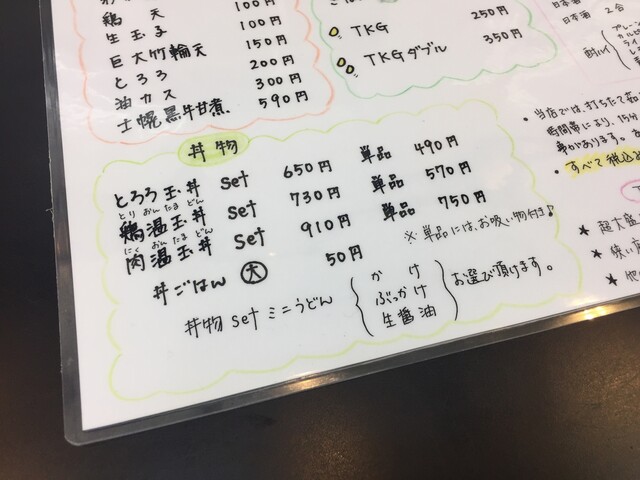 100円
鶏天 100円
生玉子 100円
巨大竹輪天 150円
とろろ 200円
油カス 300円
士幌黒牛甘煮 590円
TKG 250円
TKGダブル 350円
日本酒
日本酒 2合
酎ハイ
プレ
カルピ
ライ
レ
・当店では、打ちたて茹
時間帯により、15分
事があります。
・すべて税込
★超大盛
★狭い
★他
丼物
とろろ玉丼 set 650円 単品 490円
とりおんたまどん
鶏温玉丼 set 730円 単品 570円
にくおんたまどん
肉温玉丼 set 910円 単品 750円
※単品には、お吸い物付き♪
丼ごはん 大 50円
丼物set ミニうどん かけ ぶっかけ 生醤油 お選び頂けます。